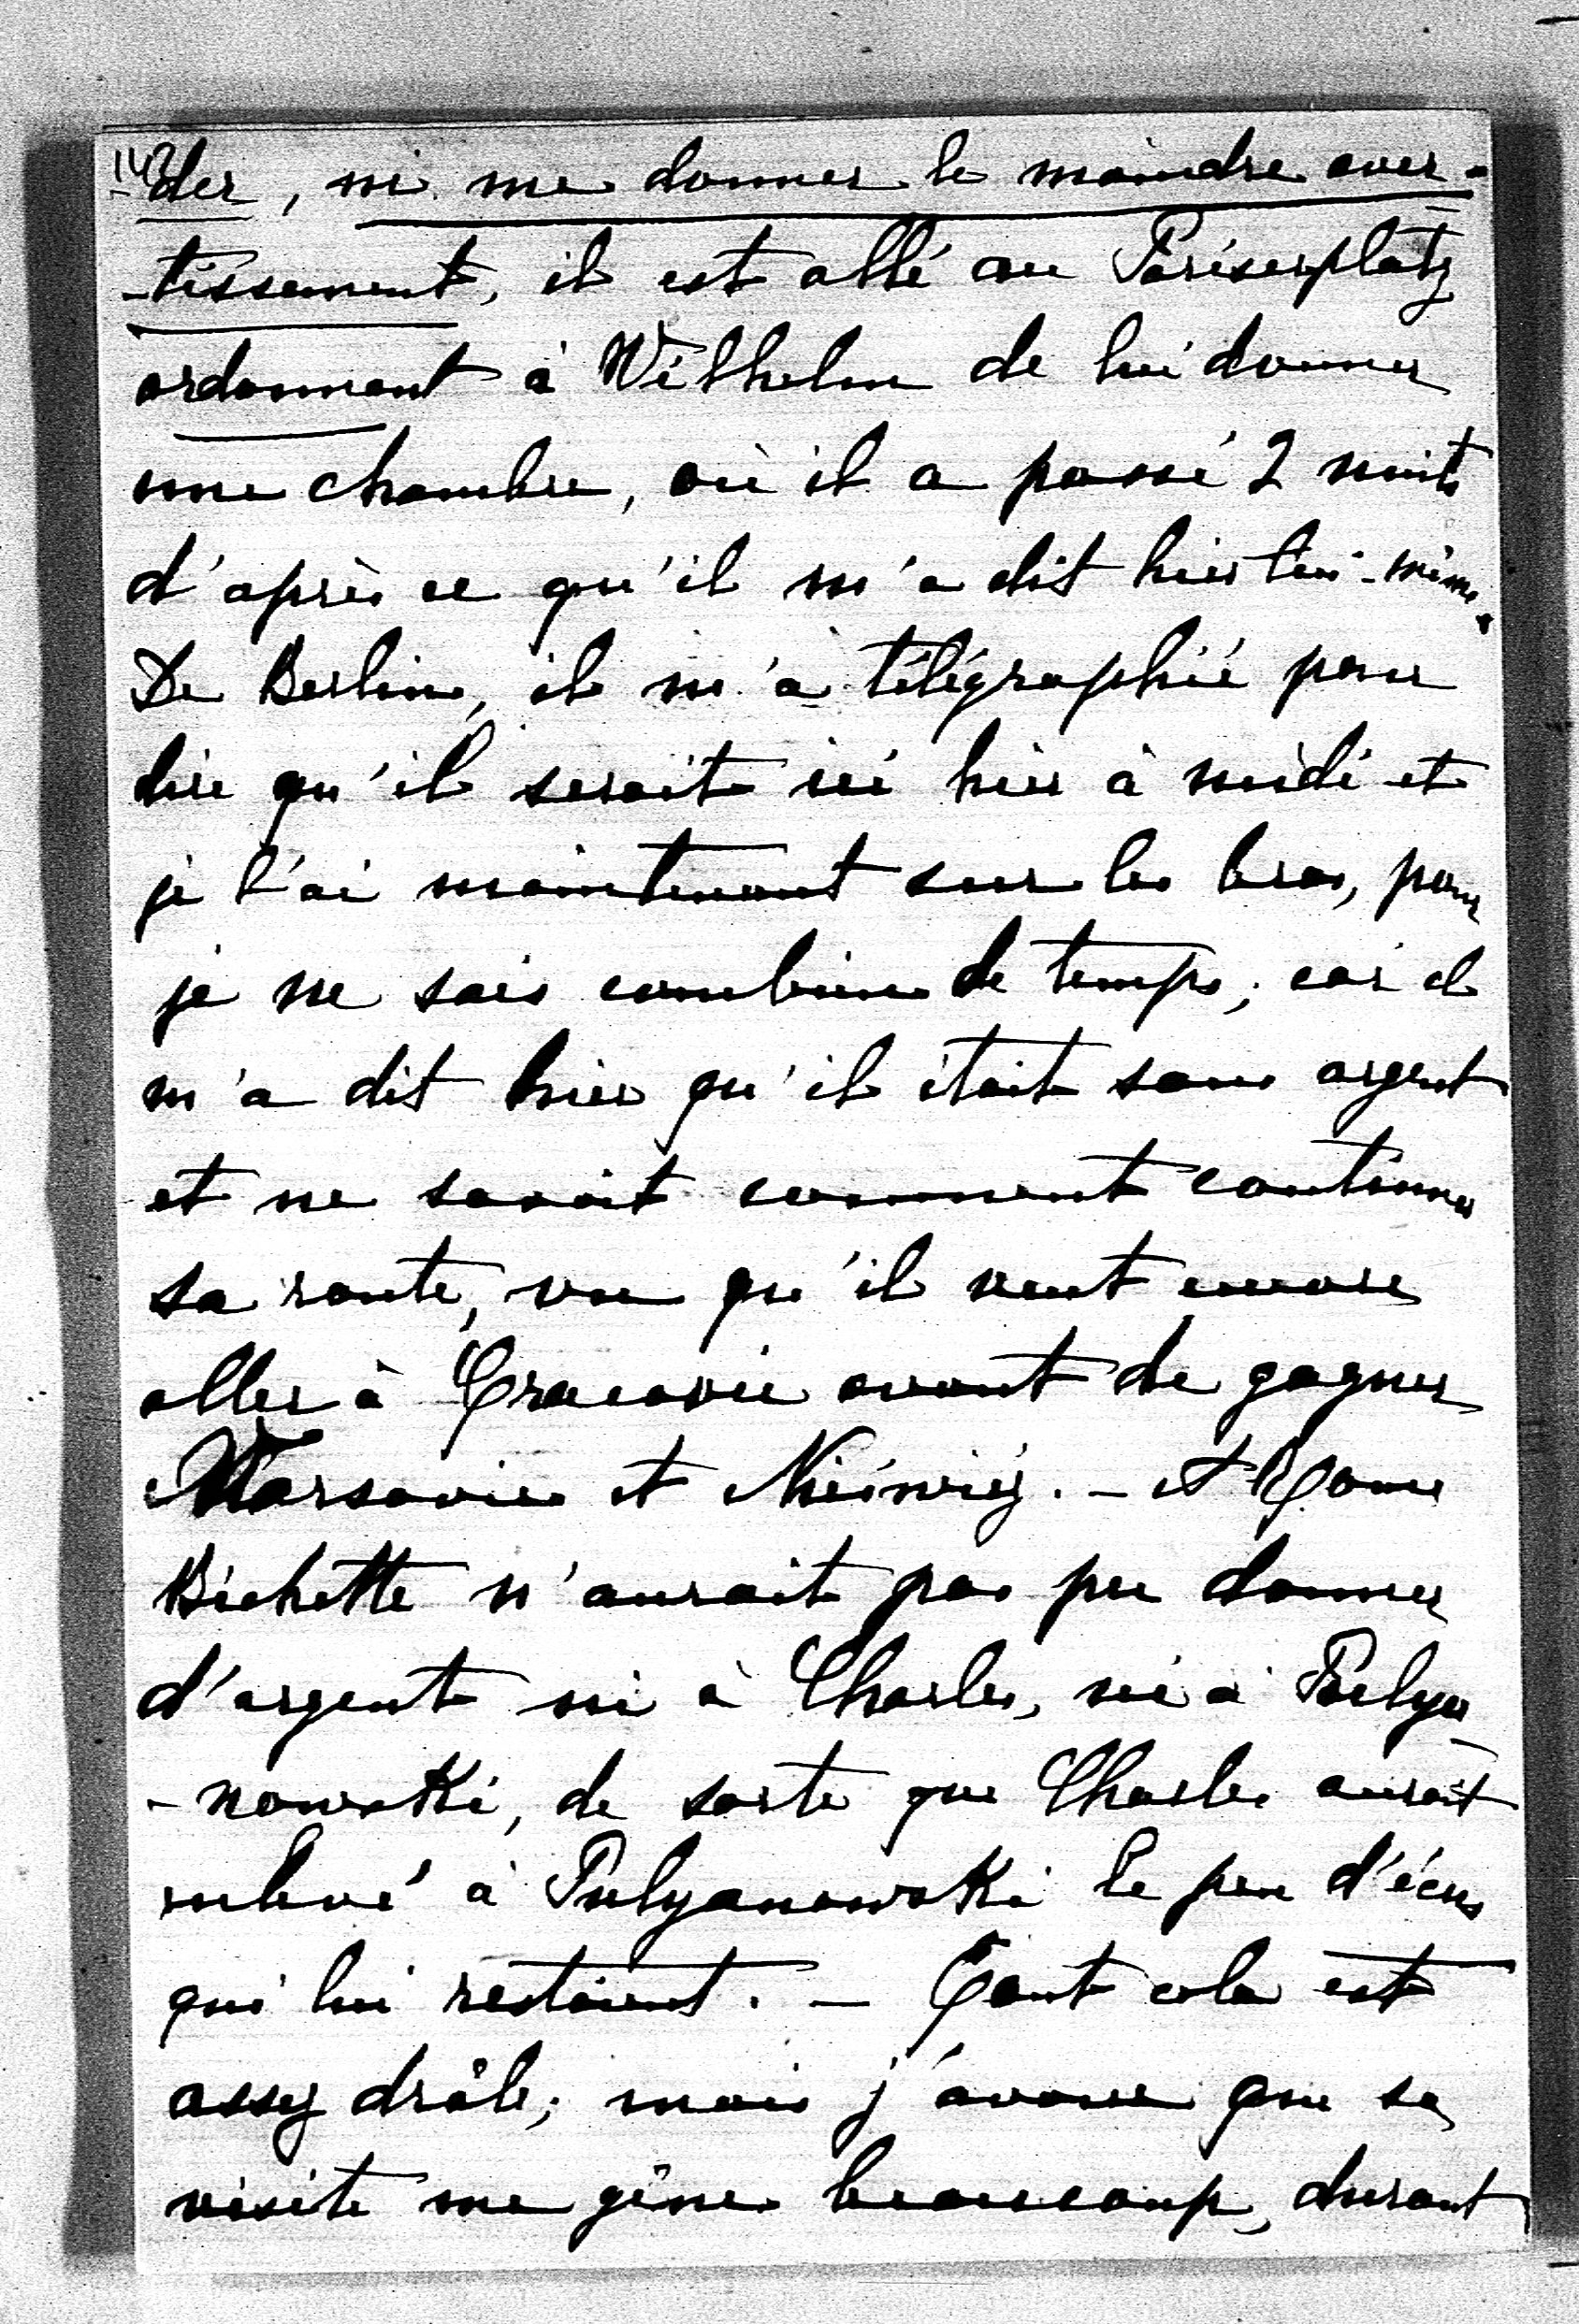 142
-der, ni me donner le moindre aver-
-tissement, il est allé au Pariserplatz
ordonnant à Wilhelm de lui donner
une chambre, où il a passé 2 nuits
d'après ce qu'il m'a dit hier lui-même.
De Berlin, il m'a télégraphié pour
dire qu'il serait ici hier à midi et
je l'ai maintenant sur les bras, pour
je ne sais combien de temps; car il
m'a dit hier qu'il était sans argent
et ne savait comment continuer
sa route, vu qu'il veut encore
aller à Cracovie avant de gagner
Varsovie et Nieśwież. - A Rome
Bichette n'aurait pas pu donner
d'argent ni à Charles, ni à Pulya-
-nowski, de sorte que Charles aurait
enlevé à Pulyanowski le peu d'écus
qui lui restaient. - Tout cela est
assez drôle; mais j'avoue que sa
visite me gêne beaucoup, durant